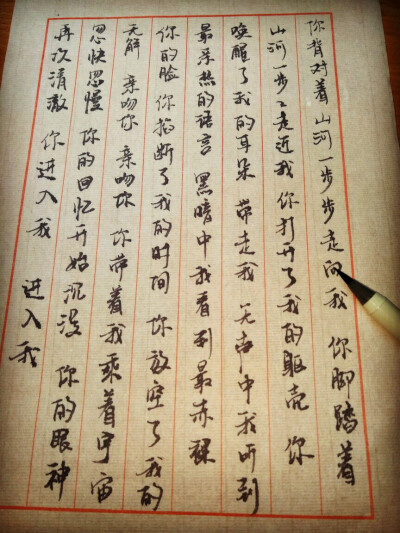 你背对着 山河一步步走向我 你脚踏着
山河一步々走近我 你打开了我的躯壳 你
唤醒了我的耳朵 带走我 无声中我听到
最热的语言 黑暗中我看到最赤裸
你的脸 你掐断了我的时间 你放空了我的
无解 亲吻你 亲吻你 你带着我乘着宇宙
忽快忽慢 你的回忆开始沉没 你的眼神
再次清澈 你进入我 进入我